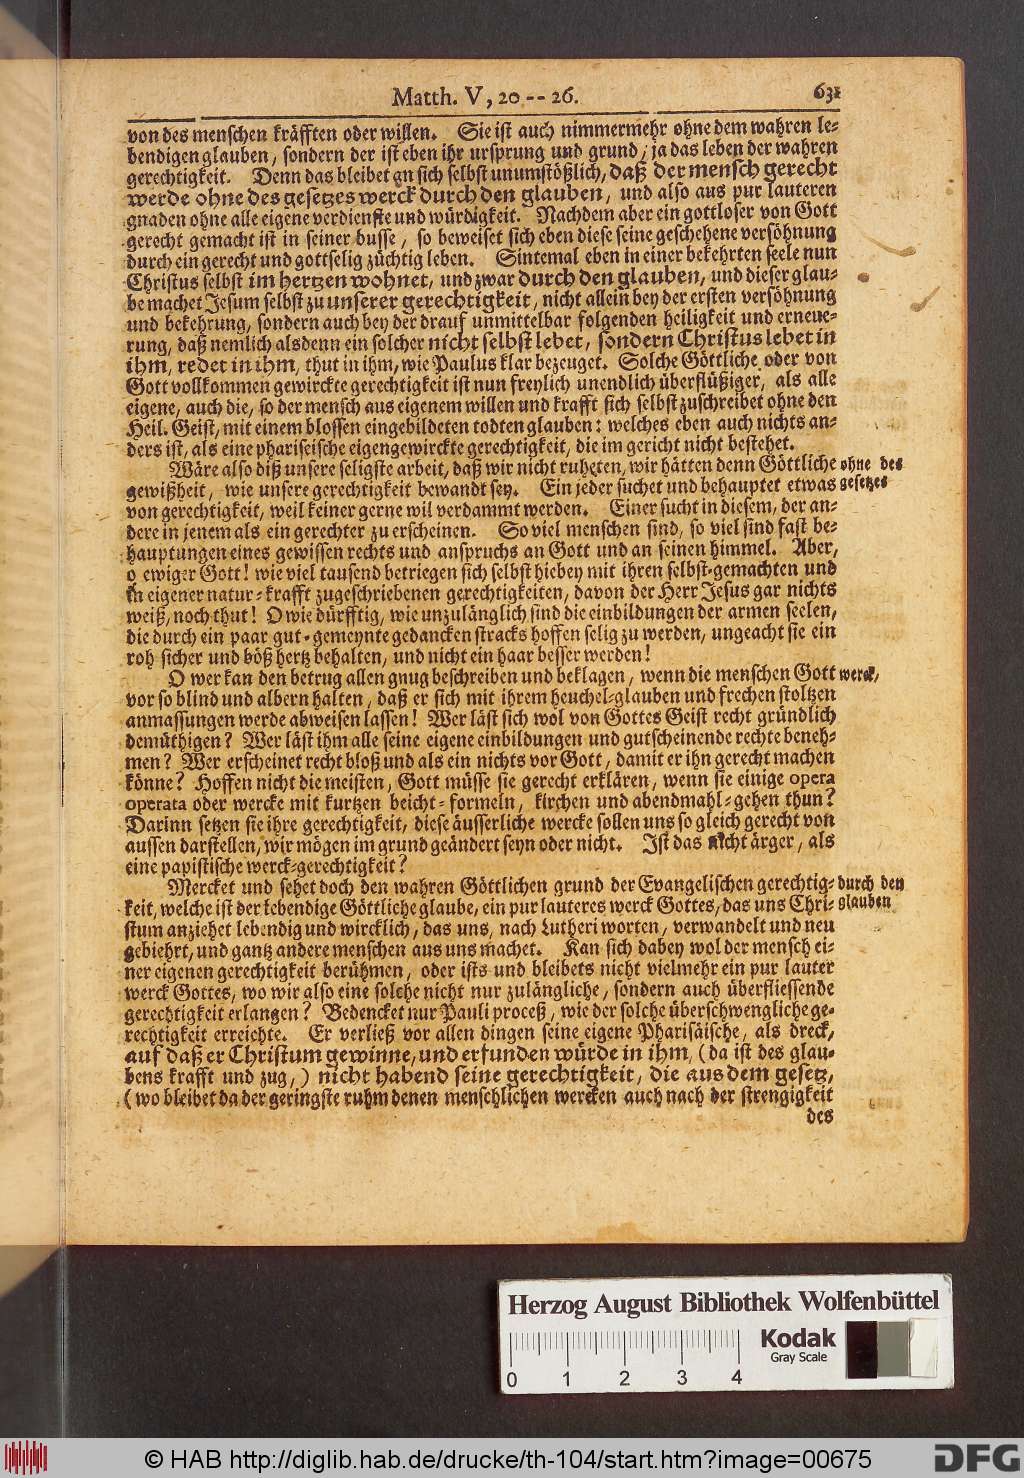 Matth. V, 20 -- 26. 631
von des menschen kräfften oder willen. Sie ist auch nimmermehr ohne dem wahren le-
bendigen glauben, sondern der ist eben ihr ursprung und grund, ja das leben der wahren
gerechtigkeit. Denn das bleibet an sich selbst unumstößlich, daß der mensch gerecht
werde ohne des gesetzes werck durch den glauben, und also aus pur lauteren
gnaden ohne alle eigene verdienste und würdigkeit. Nachdem aber ein gottloser von Gott
gerecht gemacht ist in seiner busse, so beweiset sich eben diese seine geschehene versöhnung
durch ein gerecht und gottselig züchtig leben. Sintemal eben in einer bekehrten seele nun
Christus selbst im hertzen wohnet, und zwar durch den glauben, und dieser glau-
be machet Jesum selbst zu unserer gerechtigkeit, nicht allein bey der ersten versöhnung
und bekehrung, sondern auch bey der drauf unmittelbar folgenden heiligkeit und erneue-
rung, daß nemlich alsdenn ein solcher nicht selbst lebet, sondern Christus lebet in
ihm, redet in ihm, thut in ihm, wie Paulus klar bezeuget. Solche Göttliche oder von
Gott vollkommen gewirckte gerechtigkeit ist nun freylich unendlich überflüßiger, als alle
eigene, auch die, so der mensch aus eigenem willen und krafft sich selbst zuschreibet ohne den
Heil. Geist, mit einem blossen eingebildeten todten glauben: welches eben auch nichts an-
ders ist, als eine phariseische eigengewirckte gerechtigkeit, die im gericht nicht bestehet.
Wäre also diß unsere seligste arbeit, daß wir nicht ruheten, wir hätten denn Göttliche ohne des
gewißheit, wie unsere gerechtigkeit bewandt sey. Ein jeder suchet und behauptet etwas gesetzes
von gerechtigkeit, weil keiner gerne wil verdammt werden. Einer sucht in diesem, der an-
dere in jenem als ein gerechter zu erscheinen. So viel menschen sind, so viel sind fast be-
hauptungen eines gewissen rechts und anspruchs an Gott und an seinen himmel. Aber,
o ewiger Gott! wie viel tausend betriegen sich selbst hiebey mit ihren selbst-gemachten und
in eigener natur-krafft zugeschriebenen gerechtigkeiten, davon der Herr Jesus gar nichts
weiß, noch thut! O wie dürfftig, wie unzulänglich sind die einbildungen der armen seelen,
die durch ein paar gut-gemeynte gedancken stracks hoffen selig zu werden, ungeacht sie ein
roh sicher und böß hertz behalten, und nicht ein haar besser werden!
O wer kan den betrug allen gnug beschreiben und beklagen, wenn die menschen Gott werck,
vor so blind und albern halten, daß er sich mit ihrem heuchel-glauben und frechen stoltzen
anmassungen werde abweisen lassen! Wer läst sich wol von Gottes Geist recht gründlich
demüthigen? Wer läst ihm alle seine eigene einbildungen und gutscheinende rechte beneh-
men? Wer erscheinet recht bloß und als ein nichts vor Gott, damit er ihn gerecht machen
könne? Hoffen nicht die meisten, Gott müsse sie gerecht erklären, wenn sie einige opera
operata oder wercke mit kurtzen beicht-formeln, kirchen und abendmahl-gehen thun?
Darinn setzen sie ihre gerechtigkeit, diese äusserliche wercke sollen uns so gleich gerecht von
aussen darstellen, wir mögen im grund geändert seyn oder nicht. Ist das nicht ärger, als
eine papistische werck-gerechtigkeit?
Mercket und sehet doch den wahren Göttlichen grund der Evangelischen gerechtig- durch den
keit, welche ist der lebendige Göttliche glaube, ein pur lauteres werck Gottes, das uns Chri- glauben
stum anziehet lebendig und wircklich, das uns, nach Lutheri worten, verwandelt und neu
gebiehrt, und gantz andere menschen aus uns machet. Kan sich dabey wol der mensch ei-
ner eigenen gerechtigkeit berühmen, oder ists und bleibets nicht vielmehr ein pur lauter
werck Gottes, wo wir also eine solche nicht nur zulängliche, sondern auch überfliessende
gerechtigkeit erlangen? Bedencket nur Pauli proceß, wie der solche überschwengliche ge-
rechtigkeit erreichte. Er verließ vor allen dingen seine eigene Pharisäische, als dreck,
auf daß er Christum gewinne, und erfunden würde in ihm, (da ist des glau-
bens krafft und zug,) nicht habend seine gerechtigkeit, die aus dem gesetz,
(wo bleibet da der geringste ruhm denen menschlichen wercken auch nach der strengigkeit
des
Herzog August Bibliothek Wolfenbüttel
Kodak
Gray Scale
0 1 2 3 4
© HAB http://diglib.hab.de/drucke/th-104/start.htm?image=00675
DFG